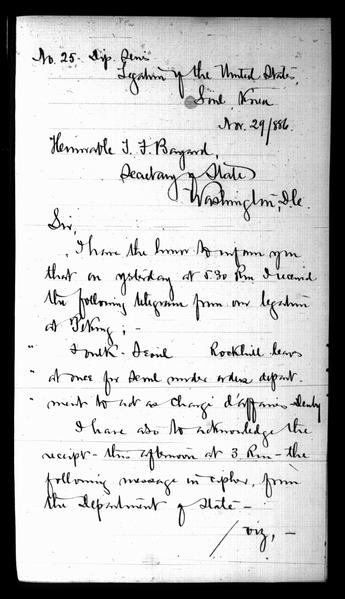 No. 25. Dip. Series
Legation of the United States,
Söul, Korea
Nov. 29/886.
Honorable T. F. Bayard,
Secretary of State
Washington, D.C.
Sir,
I have the honor to inform you
that on yesterday at 5.30 P.m. I received
the following telegram from our legation
at Peking; -
" Foulk - Seoul Rockhill leaves
" at once for Seoul under orders depart-
" ment to act as Chargé d'affaires Denby
I have also to acknowledge the
receipt - this afternoon at 3 P.m - the
following message in cipher, from
the Department of State -
/ viz, -